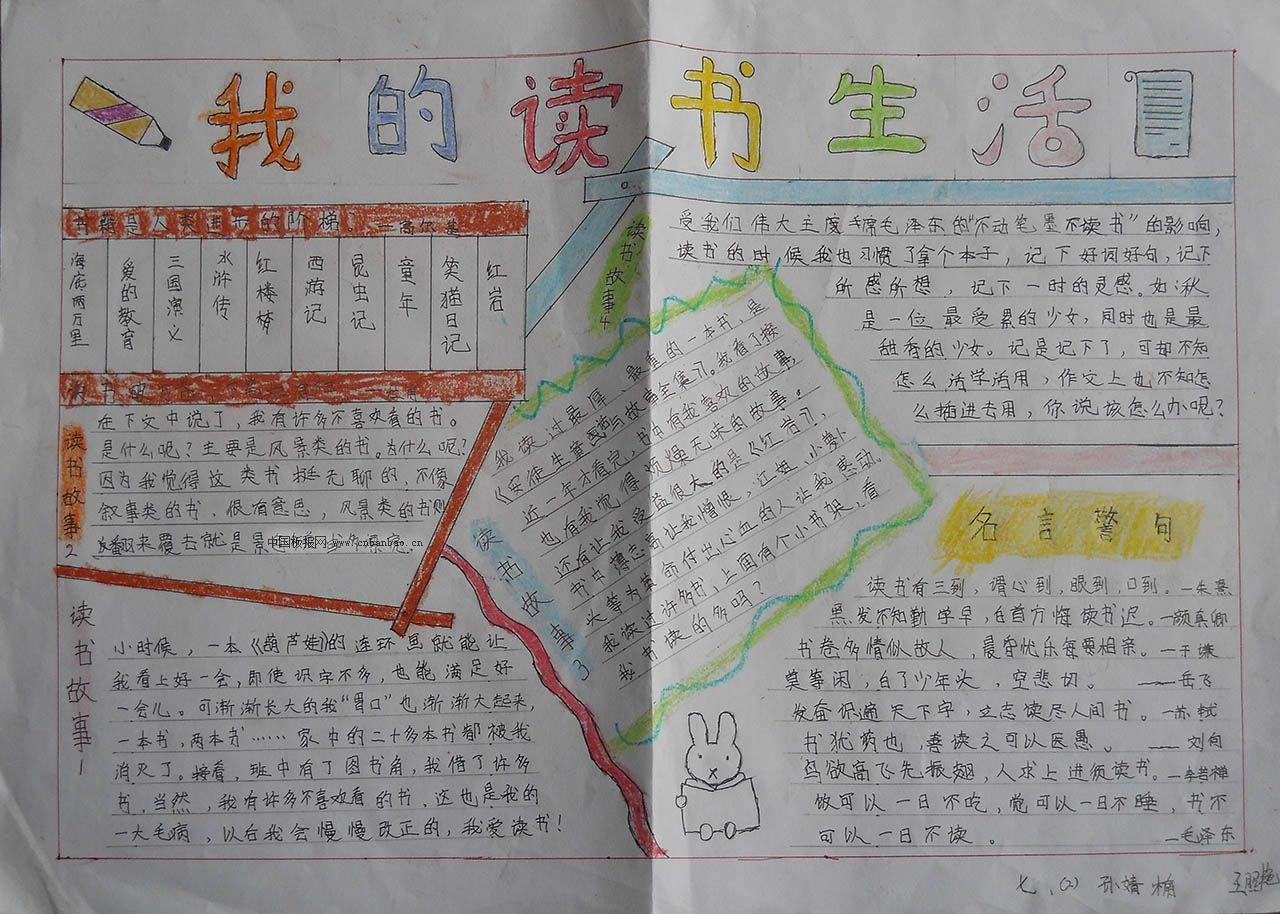 我的读书生活
书籍是人类进步的阶梯。——高尔基
海底两万里
爱的教育
三国演义
水浒传
红楼梦
西游记
昆虫记
童年
笑猫日记
红岩
读书故事2
在下文中说了，我有许多不喜欢看的书。
是什么呢？主要是风景类的书。为什么呢？
因为我觉得这类书挺无聊的，不像
叙事类的书，很有意思，风景类的书则
翻来覆去就是景
中国板报网 www.cnbanbao.cn
读书故事1
小时候，一本《葫芦娃》的连环画就能让
我看上好一会，即使识字不多，也能满足好
一会儿。可渐渐长大的我“胃口”也渐渐大起来，
一本书，两本书……家中的二十多本书都被我
消灭了。接着，班中有了图书角，我借了许多
书，当然，我有许多不喜欢看的书，这也是我的
一大毛病，以后我会慢慢改正的，我爱读书！
读书故事3
我读过最厚，最重的一本书，是
《安徒生童话与故事全集》。我看了接
近一年才看完，书中有我喜欢的故事，
也有我觉得枯燥无味的故事。
还有让我受益很大的是《红岩》，
书中
高让我憎恨，江姐，小萝卜
头等为革命付出心血的人让我感动。
我读过许多书，上面有个小书架，看
我书读的多吗？
读书故事4
受我们伟大主席毛泽东的“不动笔墨不读书”的影响，
读书的时候我也习惯了拿个本子，记下好词好句，记下
所感所想，记下一时的灵感。如：秋
是一位最受累的少女，同时也是最
甜香的少女。记是记下了，可却不知
怎么活学活用，作文上也不知怎
么插进去用，你说该怎么办呢？
名言警句
读书有三到，谓心到，眼到，口到。—朱熹
黑发不知勤学早，白首方悔读书迟。—颜真卿
书卷多情似故人，晨昏忧乐每要相亲。—于谦
莫等闲，白了少年头，空悲切。——岳飞
发奋识遍天下字，立志读尽人间书。—苏轼
书犹药也，善读之可以医愚。——刘向
鸟欲高飞先振翅，人求上进须读书。—李若禅
饭可以一日不吃，觉可以一日不睡，书不
可以一日不读。
—毛泽东
七、(2) 孙婧楠